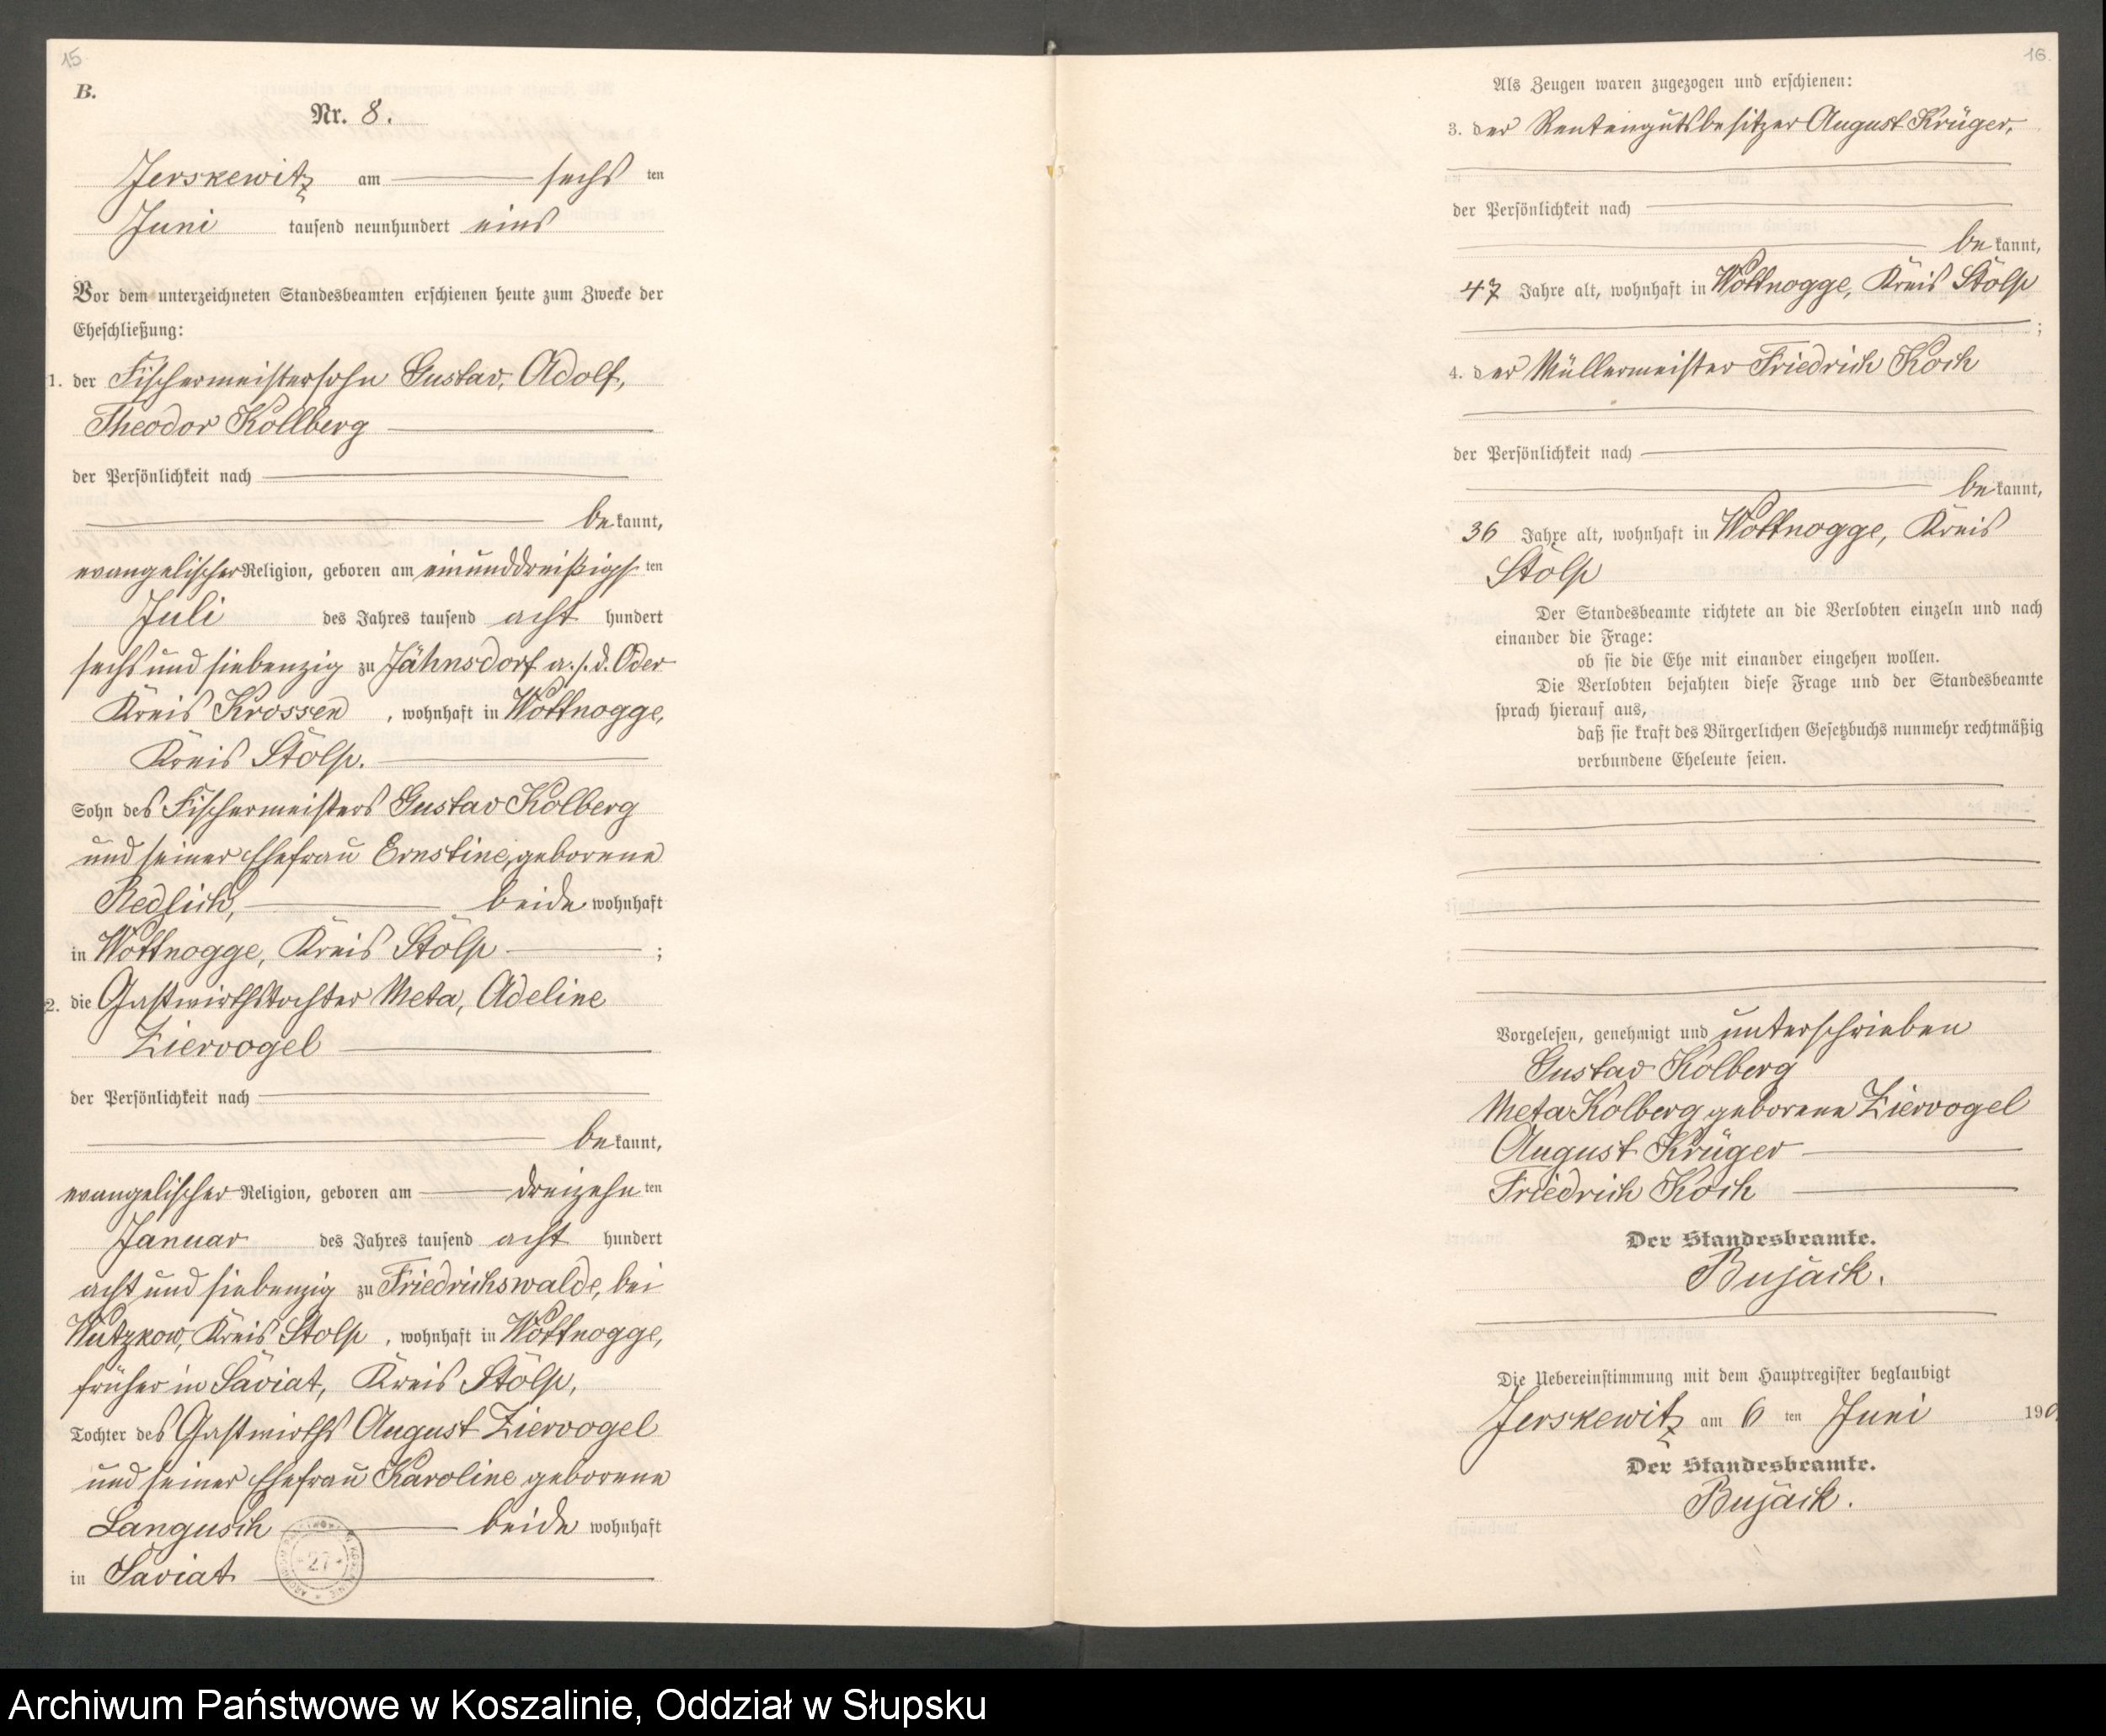 15
B.
Nr. 8.
Jerskewitz am sechs ten
Juni tausend neunhundert eins
Vor dem unterzeichneten Standesbeamten erschienen heute zum Zwecke der
Eheschließung:
1. der Fischermeistersohn Gustav, Adolf,
Theodor Kollberg
der Persönlichkeit nach
be kannt,
evangelischer Religion, geboren am einunddreißigs ten
Juli des Jahres tausend acht hundert
sechs und siebenzig zu Jähnsdorf a./.d. Oder
Kreis Krossen, wohnhaft in Wottnogge,
Kreis Stolp.
Sohn des Fischermeisters Gustav Kolberg
und seiner Ehefrau Ernstine, geborene
Redlich, beide wohnhaft
in Wottnogge, Kreis Stolp ;
2. die Gastwirthstochter Meta, Adeline
Ziervogel
der Persönlichkeit nach
be kannt,
evangelischer Religion, geboren am dreizehn ten
Januar des Jahres tausend acht hundert
acht und siebenzig zu Friedrichswalde, bei
Wutzkow, Kreis Stolp, wohnhaft in Wottnogge,
früher in Saviat, Kreis Stolp,
Tochter des Gastwirths August Ziervogel
und seiner Ehefrau Karoline geborene
Langusch beide wohnhaft
in Saviat
27
16.
Als Zeugen waren zugezogen und erschienen:
3. der Rentengutsbesitzer August Krüger,
der Persönlichkeit nach
be kannt,
47 Jahre alt, wohnhaft in Wottnogge, Kreis Stolp
;
4. der Müllermeister Friedrich Koch
der Persönlichkeit nach
be kannt,
36 Jahre alt, wohnhaft in Wottnogge, Kreis
Stolp
Der Standesbeamte richtete an die Verlobten einzeln und nach
einander die Frage:
ob sie die Ehe mit einander eingehen wollen.
Die Verlobten bejahten diese Frage und der Standesbeamte
sprach hierauf aus,
daß sie kraft des Bürgerlichen Gesetzbuchs nunmehr rechtmäßig
verbundene Eheleute seien.
Vorgelesen, genehmigt und unterschrieben
Gustav Kolberg
Meta Kolberg geborene Ziervogel
August Krüger
Friedrich Koch
Der Standesbeamte.
Bujack.
Die Uebereinstimmung mit dem Hauptregister beglaubigt
Jerskewitz am 6 ten Juni 190
Der Standesbeamte.
Bujack.
Archiwum Państwowe w Koszalinie, Oddział w Słupsku